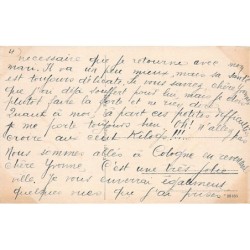 "
nécessaire que je retourne avec mon
mari. Il va un peu mieux, mais sa santé
est toujours délicate. Je vous savez, chère
que j'ai déjà souffert pour lui, mais je dois
plutôt faire la forte et ne rien dire.
Quant à moi, à part ces petites difficultés
je me porte toujours bien. Oh! n'allez pas
croire aux cent Kilogs!!!
Nous sommes allés à Cologne
chère Yvonne. C'est une très jolie
ville. Je vous enverrai également
quelques vues que j'ai prises